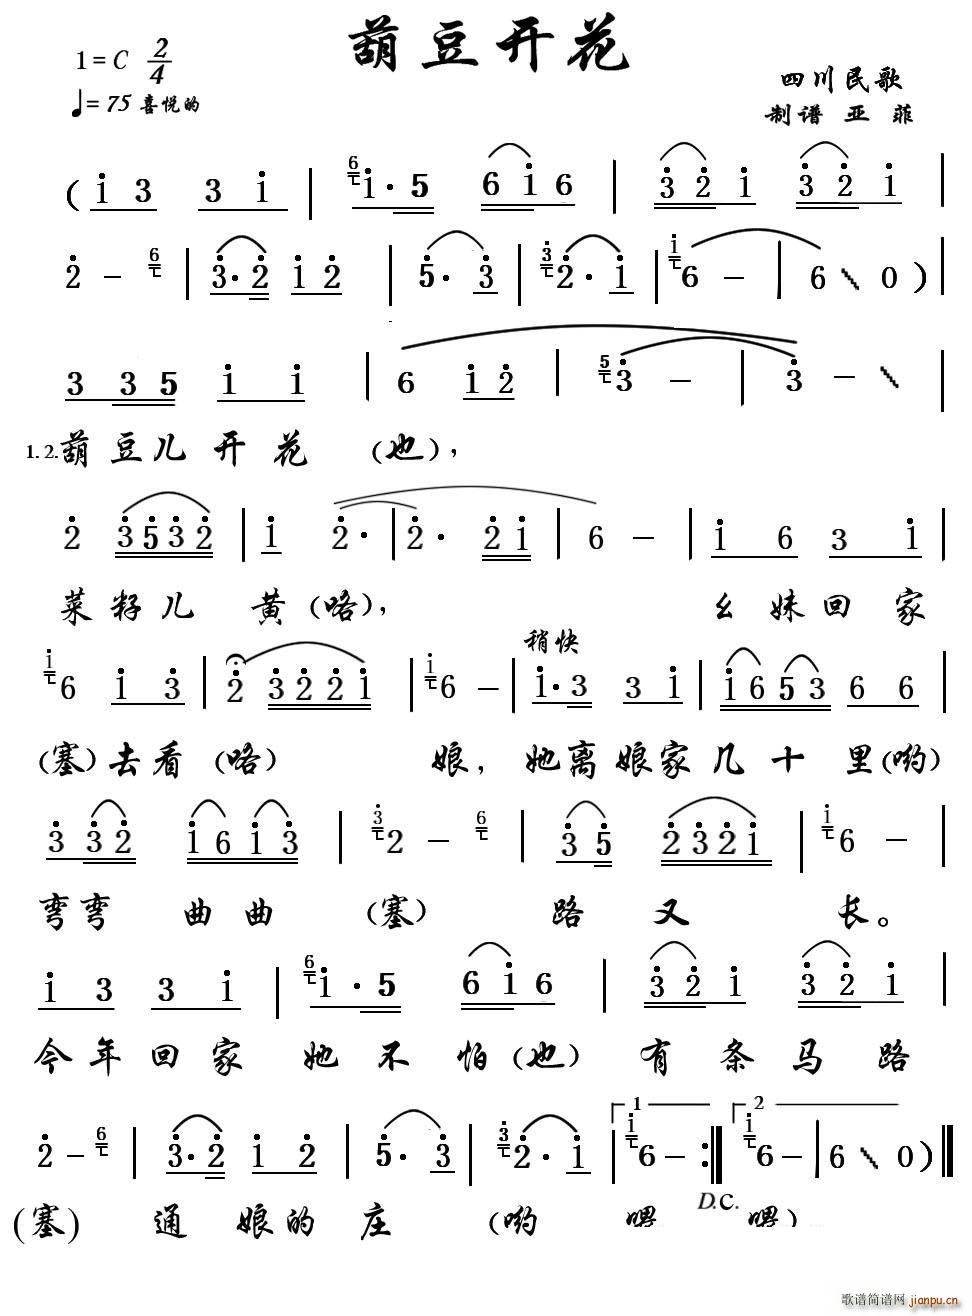 葫豆开花
1=C 2/4
♩=75 喜悦的
四川民歌
制谱 亚 菲
( i 3 3 i | 6 i· 5 6 i 6 | 3 2 i 3 2 i |
2 − 6 | 3· 2 i 2 | 5· 3 | 3 2· i | i 6 − | 6 0 ) |
3 3 5 i i | 6 i 2 | 5 3 − | 3 − |
1. 2. 葫豆儿开花 (也),
2 3 5 3 2 | i 2· | 2· 2 i | 6 − | i 6 3 i |
菜籽儿 黄(咯), 幺妹回家
i 6 i 3 | 2 3 2 2 i | i 6 − | i· 3 3 i | i 6 5 3 6 6 |
稍快
(塞)去看(咯) 娘, 她离娘家几十里(哟)
3 3 2 i 6 i 3 | 3 2 − 6 | 3 5 2 3 2 i | i 6 − |
弯弯 曲曲 (塞) 路又 长。
i 3 3 i | 6 i· 5 6 i 6 | 3 2 i 3 2 i |
今年回家她不怕(也)有条马路
1 2
2 − 6 | 3· 2 i 2 | 5· 3 | 3 2· i | i 6 − :| i 6 − | 6 0 ) ||
D.C.
(塞) 通娘的庄 (哟 嘿 嘿)
歌谱简谱网
jianpu.cn